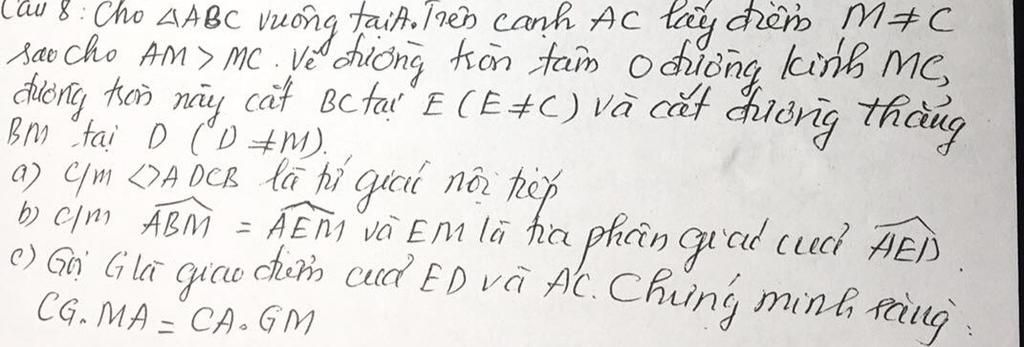 Câu 8: Cho △ABC vuông tại A. Trên cạnh AC lấy điểm M ≠ C
sao cho AM > MC. Vẽ đường tròn tâm O đường kính MC,
đường tròn này cắt BC tại E (E ≠ C) và cắt đường thẳng
BM tại D (D ≠ M).
a) C/m ◇ADCB là tứ giác nội tiếp
b) C/m \widehat{ABM} = \widehat{AEM} và EM là tia phân giác của \widehat{AED}.
c) Gọi G là giao điểm của ED và AC. Chứng minh rằng:
CG.MA = CA.GM